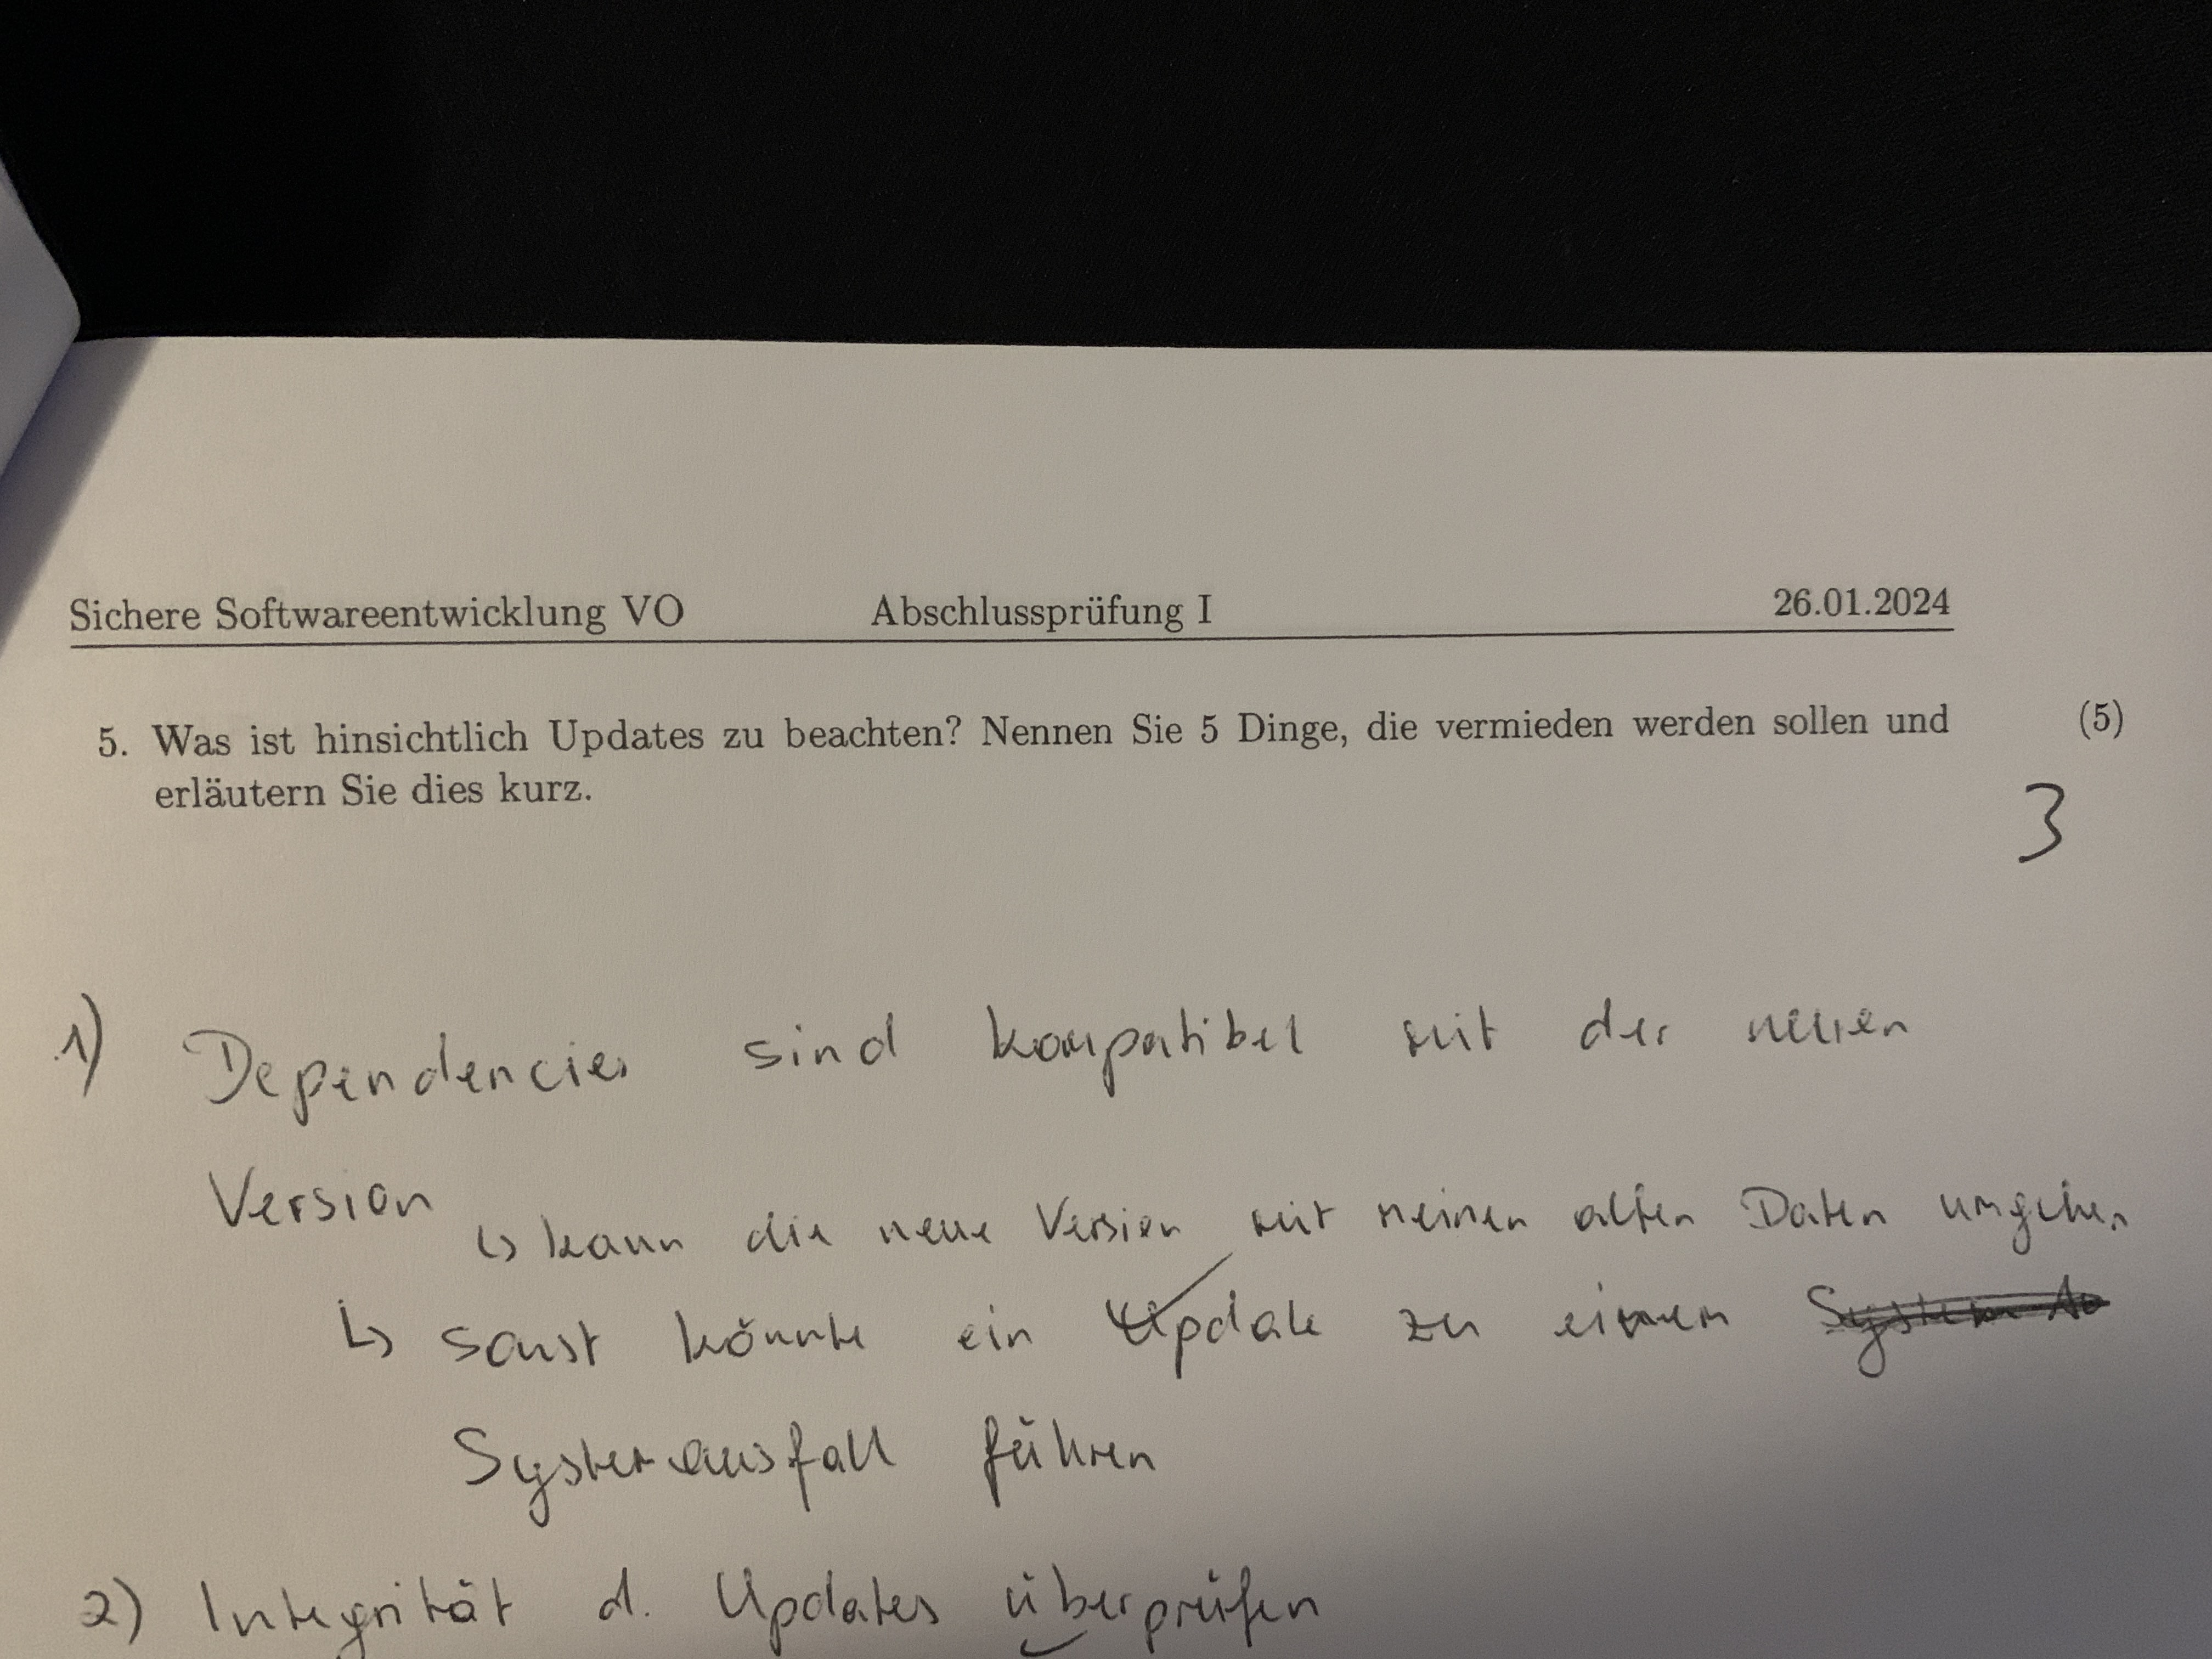 Sichere Softwareentwicklung VO Abschlussprüfung I 26.01.2024
5. Was ist hinsichtlich Updates zu beachten? Nennen Sie 5 Dinge, die vermieden werden sollen und (5)
erläutern Sie dies kurz.
3
1) Dependencies sind kompatibel mit der neuen
Version
↳ kann die neue Version mit meinen alten Daten umgehen
↳ sonst könnte ein Update zu einem
Systemausfall führen
2) Integrität d. Updates überprüfen